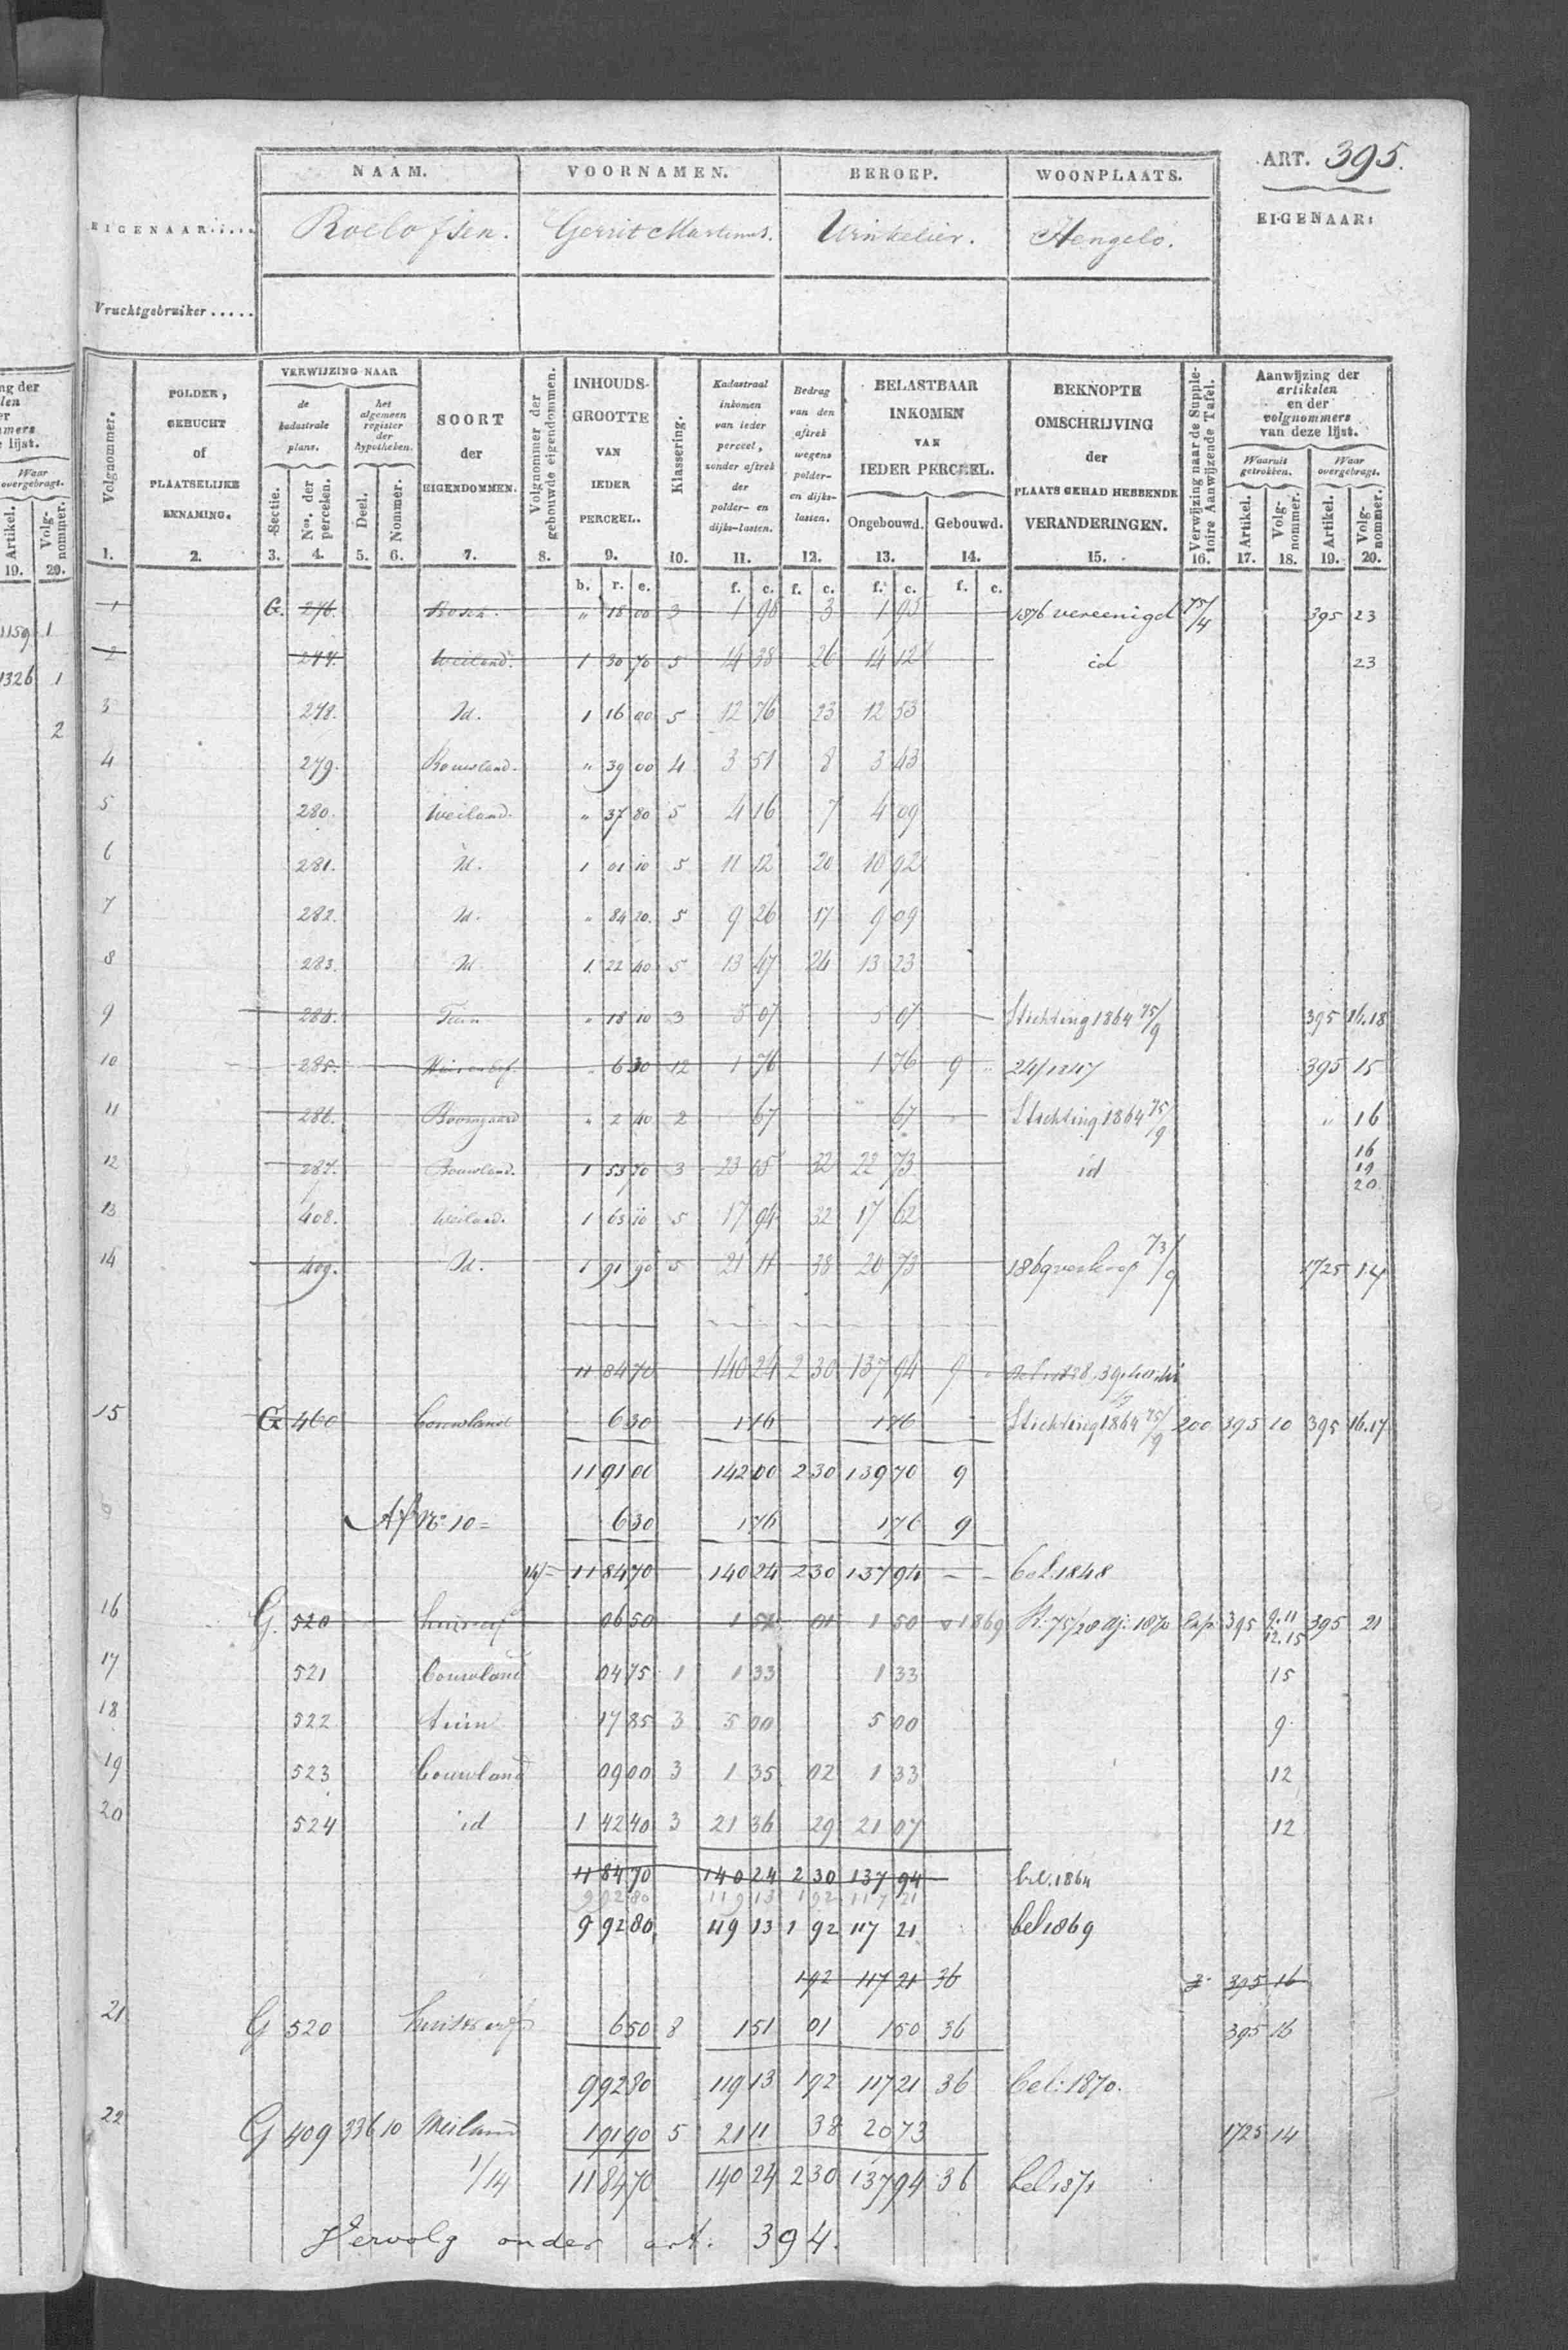 ART. 395.
NAAM. VOORNAMEN. BEROEP. WOONPLAATS.
EIGENAAR..... Roelofsen. Gerrit Martinus. Winkelier. Hengelo. EIGENAAR:
Vruchtgebruiker.....
Volgnommer. 1.
POLDER, GEHUCHT of PLAATSELIJKE BENAMING. 2.
VERWIJZING NAAR
de kadastrale plans. Sectie. 3. Nos. der percelen. 4.
het algemeen register der hypotheken. Deel. 5. Nommer. 6.
SOORT der EIGENDOMMEN. 7.
Volgnommer der gebouwde eigendommen. 8.
INHOUDS-GROOTTE VAN IEDER PERCEEL. 9.
Klassering. 10.
Kadastraal inkomen van ieder perceel, zonder aftrek der polder- en dijks-lasten. 11.
Bedrag van den aftrek wegens polder- en dijks-lasten. 12.
BELASTBAAR INKOMEN VAN IEDER PERCEEL. Ongebouwd. 13. Gebouwd. 14.
BEKNOPTE OMSCHRIJVING der PLAATS GEHAD HEBBENDE VERANDERINGEN. 15.
Verwijzing naar de Suppletoire Aanwijzende Tafel. 16.
Aanwijzing der artikelen en der volgnommers van deze lijst.
Waaruit getrokken. Artikel. 17. Volg-nommer. 18.
Waar overgebragt. Artikel. 19. Volg-nommer. 20.
b. r. e. f. c. f. c. f. c. f. c.
1 G. 276. Bosch. " 18 00 3 1 98 3 1 95 1876 vereenigd 75/4 395 23
2 277. Weiland. 1 30 70 5 14 38 26 14 12 id 23
3 278. Id. 1 16 00 5 12 76 23 12 53
4 279. Bouwland. " 39 00 4 3 51 8 3 43
5 280. Weiland. " 37 80 5 4 16 7 4 09
6 281. Id. 1 01 10 5 11 12 20 10 92
7 282. Id. " 84 20. 5 9 26 17 9 09
8 283. Id 1. 22 40 5 13 47 24 13 23
9 284. Tuin " 18 10 3 5 07 5 07 Stichting 1864 75/9 395 16.18
10 285. Huis en erf " 6 30 12 1 76 1 76 9 " 24/1247 395 15
11 286. Boomgaard " 2 40 2 67 67 Stichting 1864 75/9 " 16
12 287. Bouwland. 1 53 70 3 23 05 32 22 73 id 16 19 20
13 408. Weiland. 1 63 10 5 17 94 32 17 62
14 409. Id. 1 91 90 5 21 11 38 20 73 1869 verkoop 73/9 1725 14
11 84 70 140 24 2 30 137 94 9
15 G 460 bouwland 6 30 1 76 1 76 Stichting 1864 75/9 200 395 10 395 16.17
11 91 00 142 00 2 30 139 70 9
Af No 10 = 6 30 1 76 1 76 9
14/= 11 84 70 140 24 2 30 137 94 - - bel. 1848
16 G. 520 huis erf 06 50 1 51 01 1 50 1869 395 9.11 12.15 395 21
17 521 bouwland 04 75 1 1 33 1 33 15
18 522 tuin 17 85 3 5 00 5 00 9
19 523 bouwland 09 00 3 1 35 02 1 33 12
20 524 id 1 42 40 3 21 36 29 21 07 12
11 84 70 140 24 2 30 137 94 bel. 1864
9 92 80 119 13 192 117 21
9 92 80 119 13 1 92 117 21 bel 1869
192 117 21 36 395 16
21 G 520 huis & erf 6 50 8 1 51 01 1 50 36 395 16
9 92 80 119 13 1 92 117 21 36 bel: 1870.
22 G 409 336 10 Weiland 1 91 90 5 21 11 38 20 73 1725 14
1/14 11 84 70 140 24 2 30 137 94 36 bel 1871
Vervolg onder art. 394.
ng der
mers
lijst.
Waar overgebragt.
Artikel. Volg-nommer.
19. 20.
1159 1
1326 1
2